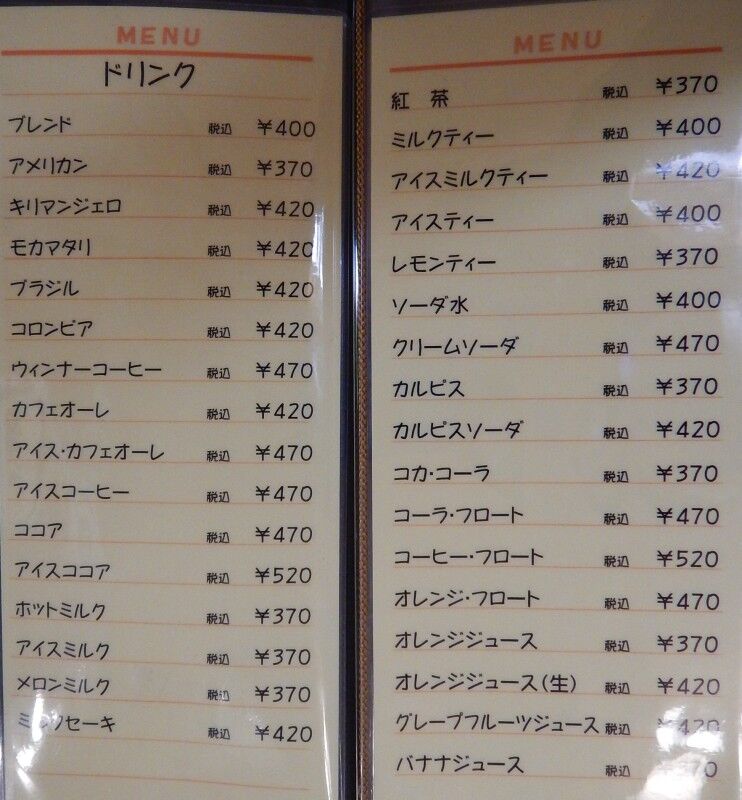 MENU
ドリンク
ブレンド 税込 ¥400
アメリカン 税込 ¥370
キリマンジェロ 税込 ¥420
モカマタリ 税込 ¥420
ブラジル 税込 ¥420
コロンビア 税込 ¥420
ウィンナーコーヒー 税込 ¥470
カフェオーレ 税込 ¥420
アイス・カフェオーレ 税込 ¥470
アイスコーヒー 税込 ¥470
ココア 税込 ¥470
アイスココア 税込 ¥520
ホットミルク 税込 ¥370
アイスミルク 税込 ¥370
メロンミルク 税込 ¥370
ミルクセーキ 税込 ¥420
MENU
紅 茶 税込 ¥370
ミルクティー 税込 ¥400
アイスミルクティー 税込 ¥420
アイスティー 税込 ¥400
レモンティー 税込 ¥370
ソーダ水 税込 ¥400
クリームソーダ 税込 ¥470
カルピス 税込 ¥370
カルピスソーダ 税込 ¥420
コカ・コーラ 税込 ¥370
コーラ・フロート 税込 ¥470
コーヒー・フロート 税込 ¥520
オレンジ・フロート 税込 ¥470
オレンジジュース 税込 ¥370
オレンジジュース(生) 税込 ¥420
グレープフルーツジュース 税込 ¥420
バナナジュース 税込